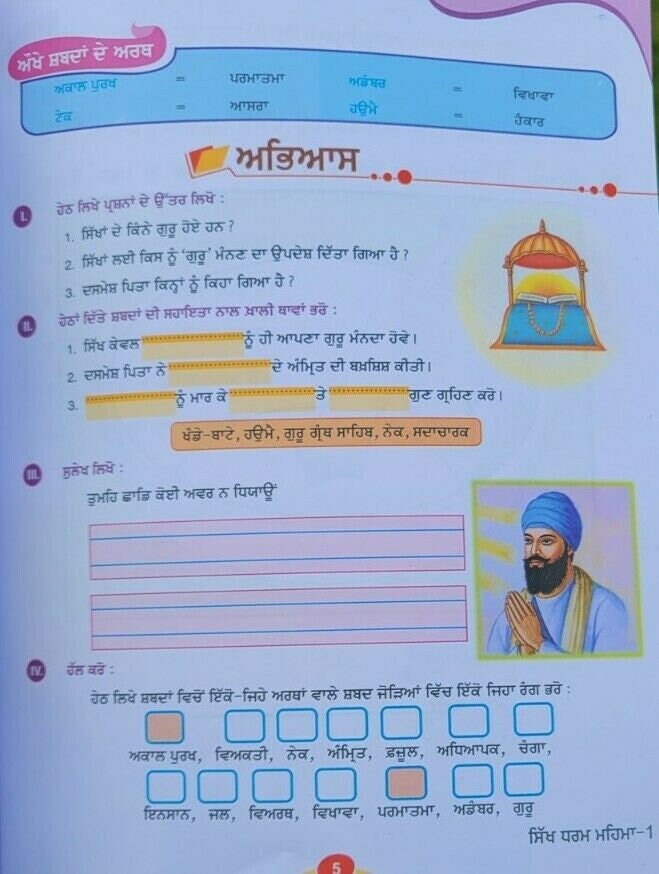 ਔਖੇ ਸ਼ਬਦਾਂ ਦੇ ਅਰਥ
ਅਕਾਲ ਪੁਰਖ = ਪਰਮਾਤਮਾ ਅਡੰਬਰ = ਵਿਖਾਵਾ
ਟੇਕ = ਆਸਰਾ ਹਉਮੈ = ਹੰਕਾਰ
ਅਭਿਆਸ
I. ਹੇਠ ਲਿਖੇ ਪ੍ਰਸ਼ਨਾਂ ਦੇ ਉੱਤਰ ਲਿਖੋ :
1. ਸਿੱਖਾਂ ਦੇ ਕਿੰਨੇ ਗੁਰੂ ਹੋਏ ਹਨ ?
2. ਸਿੱਖਾਂ ਲਈ ਕਿਸ ਨੂੰ ‘ਗੁਰੂ’ ਮੰਨਣ ਦਾ ਉਪਦੇਸ਼ ਦਿੱਤਾ ਗਿਆ ਹੈ ?
3. ਦਸਮੇਸ਼ ਪਿਤਾ ਕਿਨ੍ਹਾਂ ਨੂੰ ਕਿਹਾ ਗਿਆ ਹੈ ?
II. ਹੇਠਾਂ ਦਿੱਤੇ ਸ਼ਬਦਾਂ ਦੀ ਸਹਾਇਤਾ ਨਾਲ ਖ਼ਾਲੀ ਥਾਵਾਂ ਭਰੋ :
1. ਸਿੱਖ ਕੇਵਲ ਨੂੰ ਹੀ ਆਪਣਾ ਗੁਰੂ ਮੰਨਦਾ ਹੋਵੇ।
2. ਦਸਮੇਸ਼ ਪਿਤਾ ਨੇ ਦੇ ਅੰਮ੍ਰਿਤ ਦੀ ਬਖ਼ਸ਼ਿਸ਼ ਕੀਤੀ।
3. ਨੂੰ ਮਾਰ ਕੇ ਤੇ ਗੁਣ ਗ੍ਰਹਿਣ ਕਰੋ।
ਖੰਡੇ-ਬਾਟੇ, ਹਉਮੈ, ਗੁਰੂ ਗ੍ਰੰਥ ਸਾਹਿਬ, ਨੇਕ, ਸਦਾਚਾਰਕ
III. ਸੁਲੇਖ ਲਿਖੋ :
ਤੁਮਹਿ ਛਾਡਿ ਕੋਈ ਅਵਰ ਨ ਧਿਯਾਊਂ
IV. ਹੱਲ ਕਰੋ :
ਹੇਠ ਲਿਖੇ ਸ਼ਬਦਾਂ ਵਿਚੋਂ ਇੱਕੋ-ਜਿਹੇ ਅਰਥਾਂ ਵਾਲੇ ਸ਼ਬਦ ਜੋੜਿਆਂ ਵਿੱਚ ਇੱਕੋ ਜਿਹਾ ਰੰਗ ਭਰੋ :
ਅਕਾਲ ਪੁਰਖ, ਵਿਅਕਤੀ, ਨੇਕ, ਅੰਮ੍ਰਿਤ, ਫ਼ਜ਼ੂਲ, ਅਧਿਆਪਕ, ਚੰਗਾ,
ਇਨਸਾਨ, ਜਲ, ਵਿਅਰਥ, ਵਿਖਾਵਾ, ਪਰਮਾਤਮਾ, ਅਡੰਬਰ, ਗੁਰੂ
ਸਿੱਖ ਧਰਮ ਮਹਿਮਾ-1
5